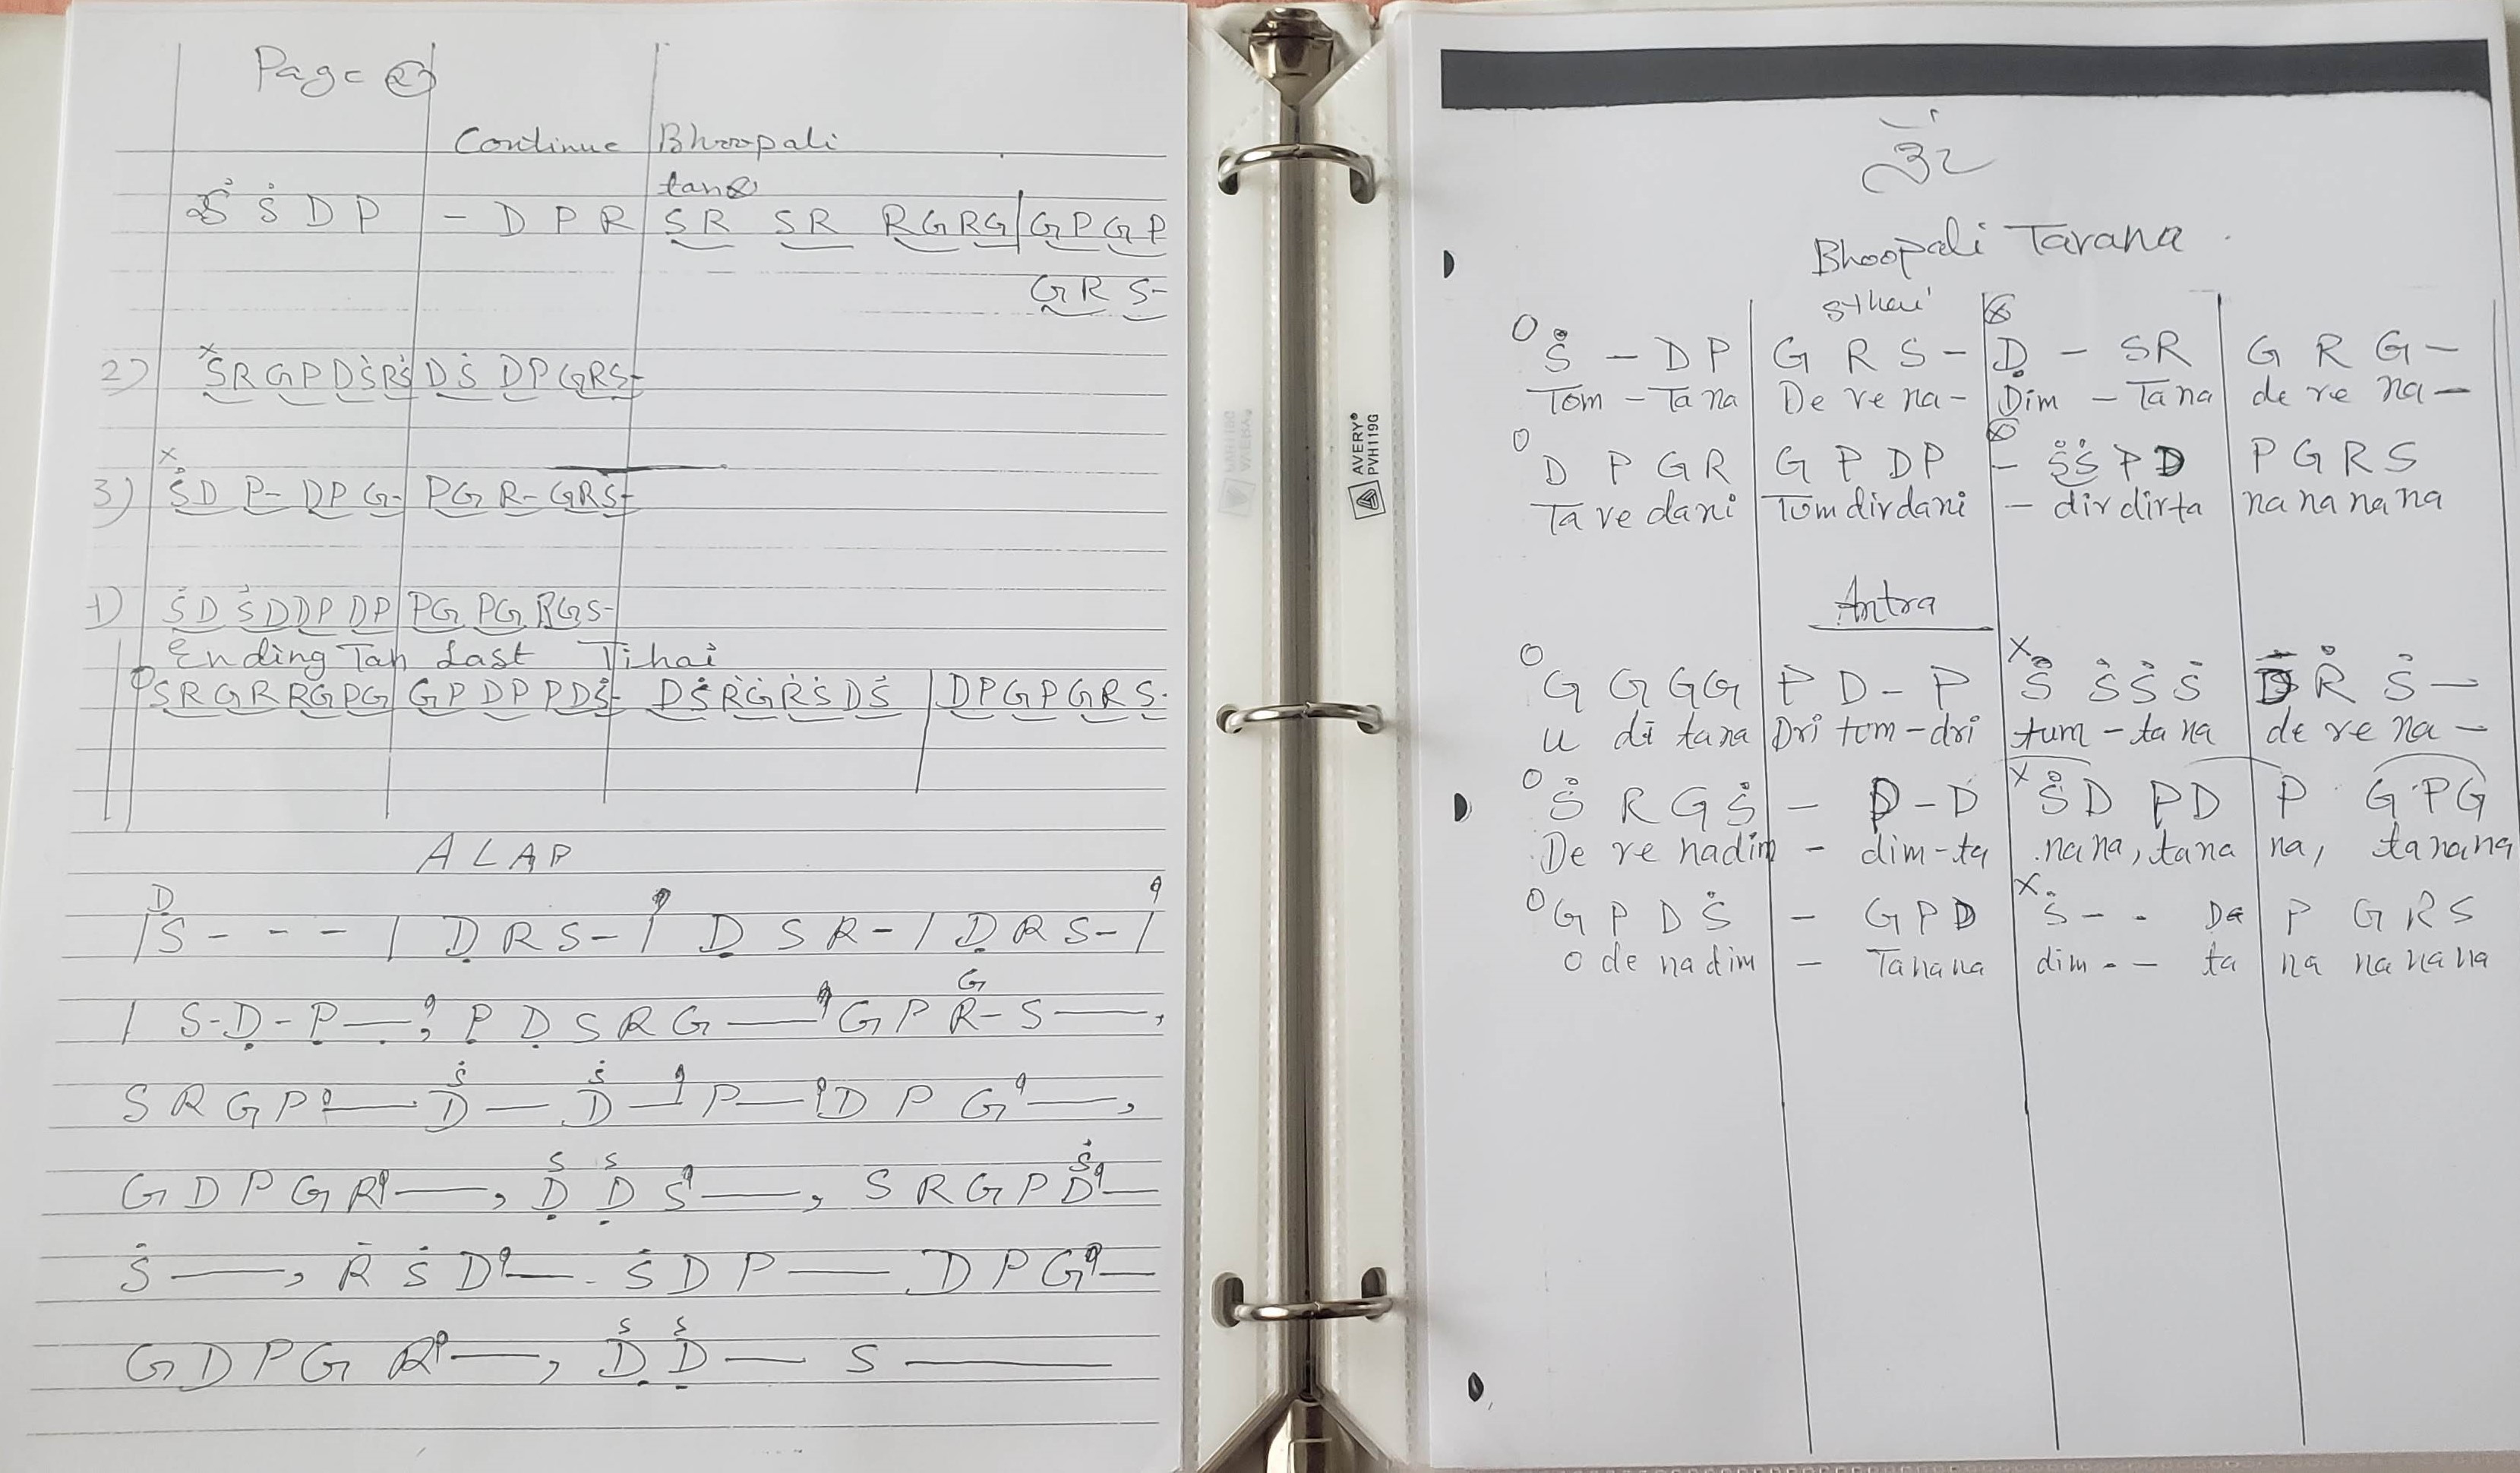 Page ②
Continue Bhoopali
tans
Ṡ Ṡ D P | - D P R | SR SR RGRG | GPGP
GRS-
2) x SRGPDṠṘṠ | DṠ DPGRS-
3) x ṠD P- DP G- | PG R- GRS-
1) ṠD ṠD DP DP | PG PG RGS-
Ending Tan Last Tihai
SRGRRGPG | GPDPPDṠ- | DṠṘĠṘṠDṠ | DPGPGRS-
ALAP
D
| S - - - | ḌRS- | ḌSR- | ḌRS- |
G
| S-Ḍ-Ṗ —, P̣ḌSRG — GPR-S —,
Ṡ Ṡ
SRGP — D — D — P — DPG —,
S S Ṡ
GDPGR —, Ḍ Ḍ S —, SRGPD —
Ṡ —, Ṙ Ṡ D — ṠDP — DPG —
S S
GDPGR —, Ḍ Ḍ — S —
AVERY®
PVH119G
ॐ
Bhoopali Tarana
Sthai
O Ṡ - D P | G R S - | ⊗ Ḍ - SR | G R G -
Tom - Tana | De re na - | Dim - Tana | de re na -
O D P G R | G P D P | ⊗ - ṠṠ P D | P G R S
Ta re dani | Tom dir dani | - dir dirta | na na na na
Antra
O G G G G | P D - P | x Ṡ Ṡ Ṡ Ṡ | D Ṙ Ṡ -
u di tana | Dri tom - dri | tum - ta na | de re na -
O Ṡ R G Ṡ | - D - D | x Ṡ D P D | P G P G
De re nadim | - dim - ta | nana, tana | na, tanana
O G P D Ṡ | - G P D | x Ṡ - - D | P G R S
O de nadim | - Tanana | dim - - ta | na na na na